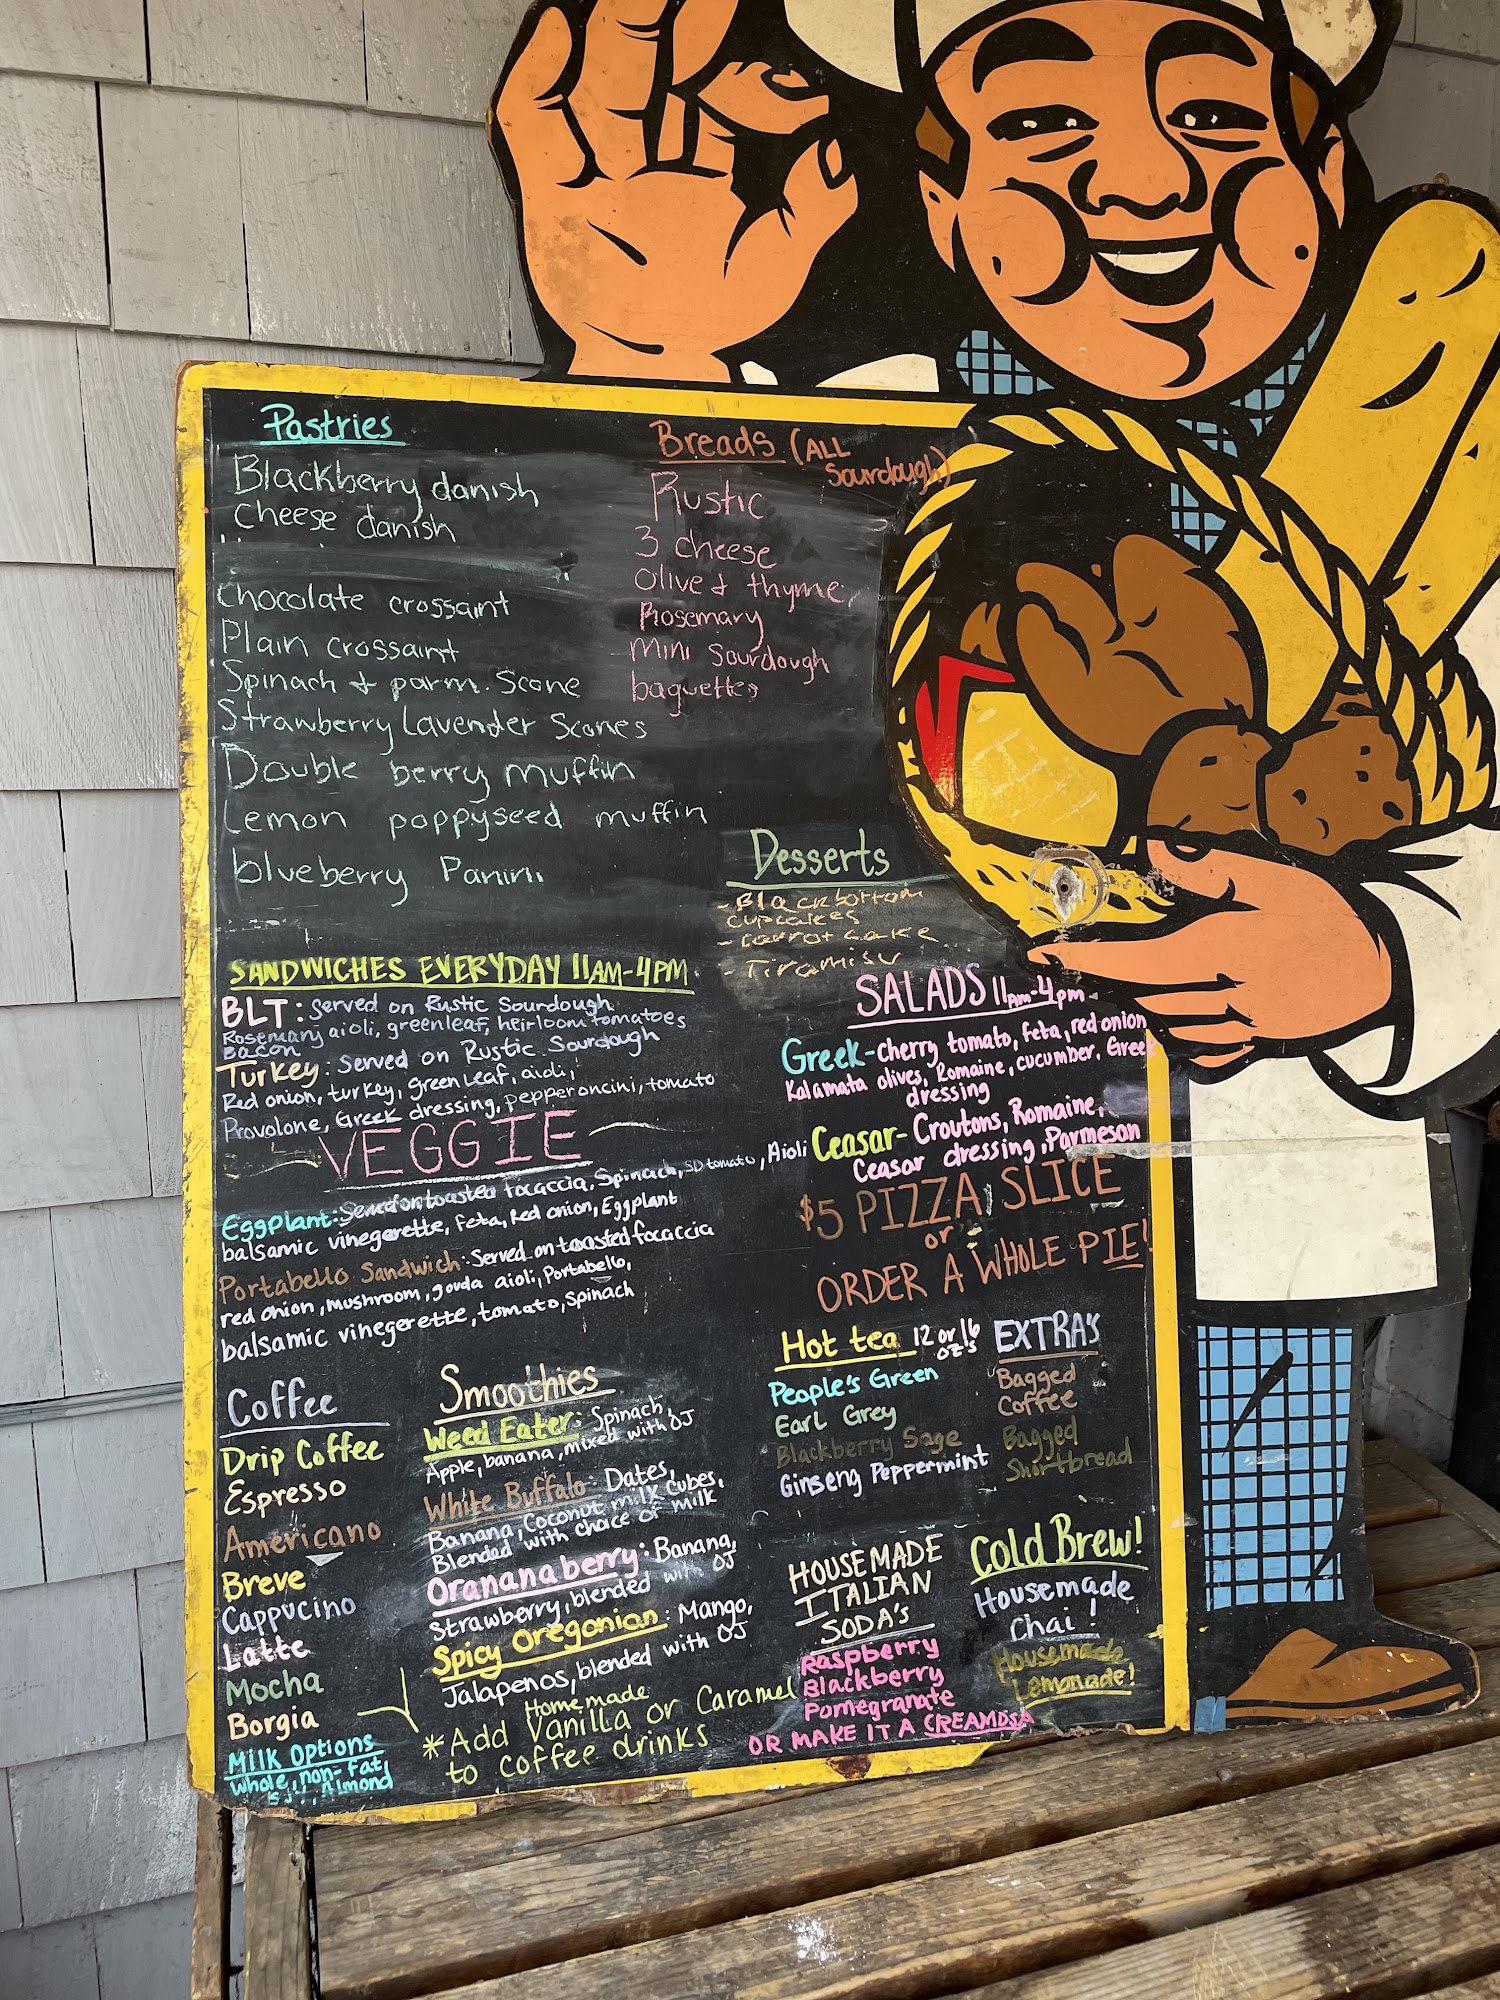 Pastries
Blackberry danish
Cheese danish
Chocolate crossaint
Plain crossaint
Spinach & parm. Scone
Strawberry Lavender Scones
Double berry muffin
Lemon poppyseed muffin
blueberry Panini
Breads (ALL
Sourdough)
Rustic
3 cheese
Olive & thyme
Rosemary
mini sourdough
baguettes
Desserts
- Blackbottom
cupcakes
- Carrot cake
- Tiramisu
SANDWICHES EVERYDAY 11AM-4PM
BLT: Served on Rustic Sourdough
Rosemary aioli, greenleaf, heirloom tomatoes
Bacon
Turkey: Served on Rustic Sourdough
Red onion, turkey, green Leaf, aioli,
Provolone, Greek dressing, pepperoncini, tomato
VEGGIE
Eggplant: Served on toasted focaccia, Spinach, SD tomato, Aioli
balsamic vinegerette, Feta, Red onion, Eggplant
Portabello Sandwich: Served on toasted focaccia
red onion, mushroom, gouda aioli, Portabello,
balsamic vinegerette, tomato, spinach
SALADS 11am-4pm
Greek-cherry tomato, feta, red onion
Kalamata olives, Romaine, cucumber, Greek
dressing
Ceasar- Croutons, Romaine,
Ceasar dressing, Parmeson
$5 PIZZA SLICE
or
ORDER A WHOLE PIE!
Coffee
Drip Coffee
Espresso
Americano
Breve
Cappucino
Latte
Mocha
Borgia
Milk Options
whole, non-Fat
Almond
Smoothies
Weed Eater: Spinach,
Apple, banana, mixed with OJ
White Buffalo: Dates,
Banana, Coconut milk cubes,
Blended with choice of milk
Orananaberry: Banana,
strawberry, blended with OJ
Spicy Oregonian: Mango,
Jalapenos, blended with OJ
Homemade
*Add Vanilla or Caramel
to coffee drinks
Hot tea 12 or 16
oz's
People's Green
Earl Grey
Blackberry Sage
Ginseng Peppermint
EXTRA'S
Bagged
Coffee
Bagged
Shortbread
HOUSEMADE
ITALIAN
SODA'S
Raspberry
Blackberry
Pomegranate
OR MAKE IT A CREAMOSA
Cold Brew!
Housemade
Chai!
Housemade
Lemonade!